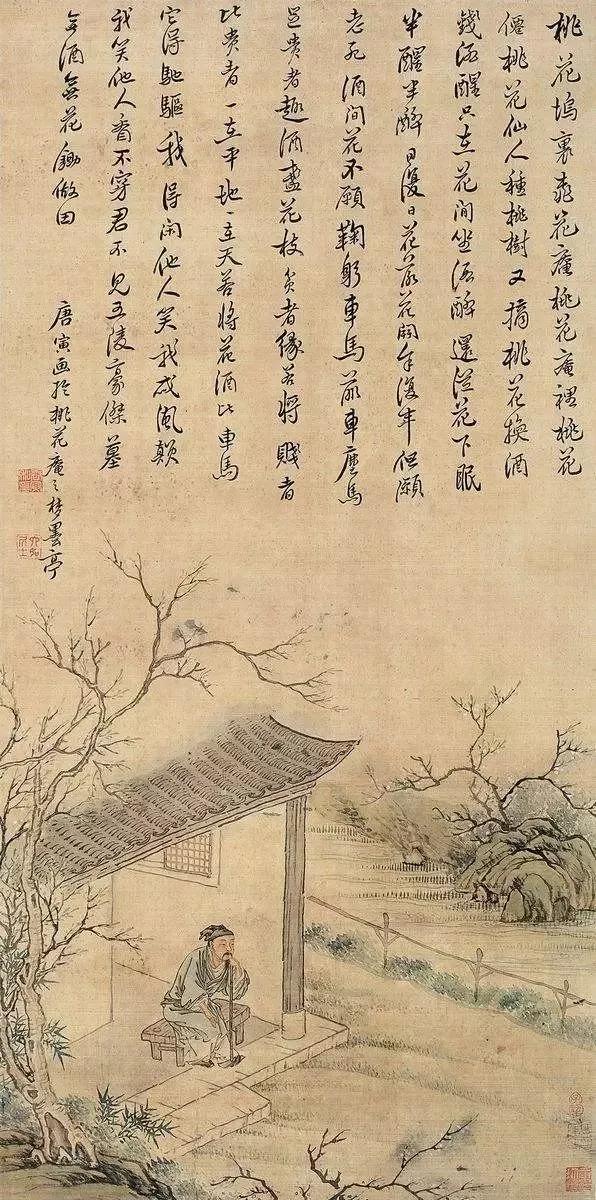 桃花塢裏桃花庵桃花庵裡桃花
僊桃花仙人種桃樹又摘桃花換酒
錢酒醒只在花間坐酒醉還從花下眠
半醒半醉日復日花落花開年復年但願
老死酒間花不願鞠躬車馬前車塵馬
足貴者趣酒盞花枝貧者緣若將賤者
比貴者一在平地一在天若將花酒比車馬
它得馳驅我得閑他人笑我忒風顛
我笑他人看不穿君不見五陵豪傑墓
無酒無花鋤做田
唐寅画於桃花庵之梦墨亭